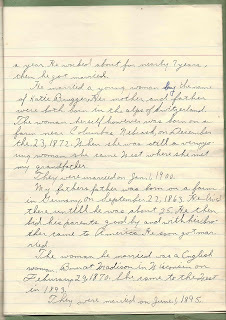 a year. He worked about for nearly 7 years,
then he got married.
He married a young woman by the name
of Katie Brugger. Her mother and father
were both born in the alps of Switzerland.
The woman herself however was born on a
farm near Columbus Nebrask, on December
the 23, 1872. When she was still a very yo
ung woman she came West where she met
my grandfather.
They were married on Jan 1, 1900.
My fathers father was born on a farm
in Germany on September 27, 1863. He lived
there until he was about 25. He then
bid his parents good by and with his bro
ther came to America. He soon got mar
ried.
The woman he married was a English
woman. Born at Madison in Wisconsin on
February 23, 1870. She came to the West
in 1893.
They were married on June 1, 1895.